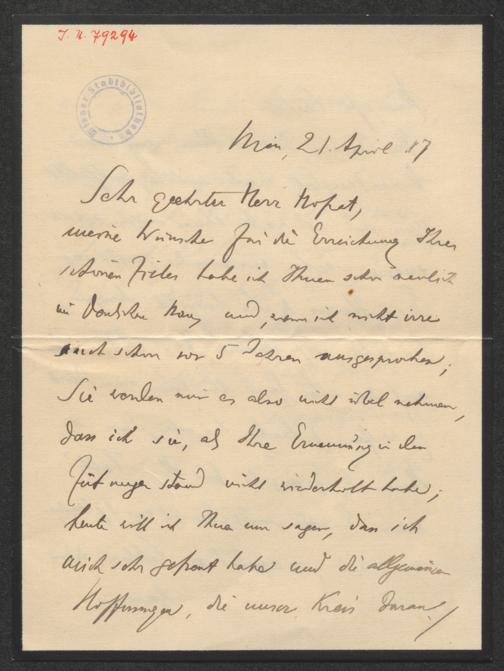 I.N. 79294
Wiener Stadtbibliothek
Wien, 21. April 17
Sehr geehrter Herr Hofrat,
meine Wünsche für die Erreichung Ihres
schönen Zieles habe ich Ihnen schon neulich
im Deutschen Haus und, wenn ich nicht irre
auch schon vor 5 Jahren ausgesprochen;
Sie werden mir es also nicht übel nehmen,
dass ich sie, als Ihre Ernennung in den
Zeitungen stand nicht wiederholt habe;
heute will ich Ihnen nur sagen, dass ich
mich sehr gefreut habe und die allgemeinen
Hoffnungen, die unser Kreis daran